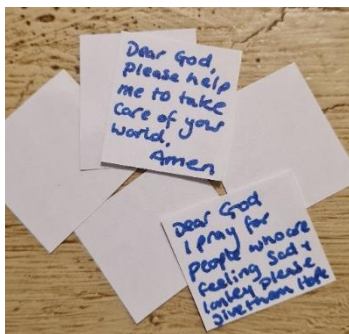 Dear God,
please help
me to take
care of your
world.
Amen
Dear God
I pray for
people who are
feeling Sad +
lonley please
give them Hope